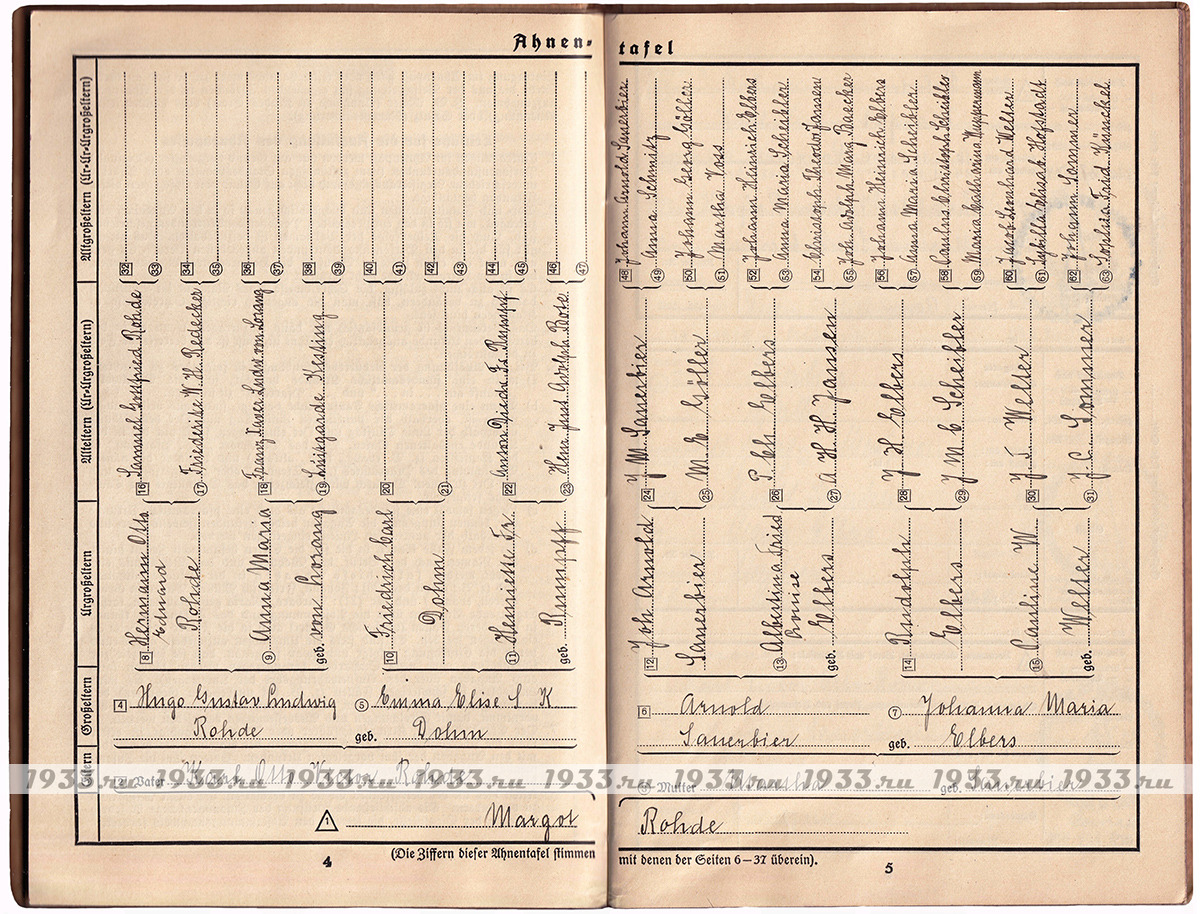 Ahnen-
tafel
Altgroßeltern (Ur-Ur-Urgroßeltern)
32
33
34
35
36
37
38
39
40
41
42
43
44
45
46
47
48 Johann Arnold Sauerbier
49 Anna Schmitz
50 Johann Georg Göller
51 Martha Voss
52 Johann Heinrich Elbers
53 Anna Maria Scheibler
54 Christoph Theodor Jansen
55 Joh Adolph Marg Braecker
56 Johann Heinrich Elbers
57 Anna Maria Scheibler
58 Paulus Christoph Scheibler
59 Maria Catharina Huppermann
60 Jacob Leonhard Welter
61 Sybilla Elisab. Hofstadt
62 Johann Sommer
63 Sophia Fried Künckel
Alteltern (Ur-Urgroßeltern)
16 Sammel Gottfried Rohde
17 Friederike W. H. Redecker
18 Franz Xaver Ludw. von Lorang
19 Luisgarde Kesting
20
21
22 Anton Diedr. Fr. Rumpf
23 Henr. Just Adolph. Bote
24 J M Sauerbier
25 M E Göller
26 P Ch Elbers
27 A H H Jansen
28 J H Elbers
29 J M C Scheibler
30 J J Welter
31 J C Sommer
Urgroßeltern
8 Hermann Otto
Eduard
Rohde
9 Anna Maria
geb. von Lorang
10 Friedrich Carl
Dohm
11 Henriette Fr.
geb. Rumpff
12 Joh Arnold
Sauerbier
13 Albertina Fried
Louise
geb. Elbers
14 Rudolph
Elbers
15 Pauline W
geb. Welter
Großeltern
4 Hugo Gustav Ludwig
Rohde
5 Emma Elise S K
geb. Dohm
6 Arnold
Sauerbier
7 Johanna Maria
geb. Elbers
Eltern
2 Vater Otto Victor Rohde
3 Mutter geb. Sauerbier
1933.ru 1933.ru 1933.ru 1933.ru 1933.ru 1933.ru 1933.ru 1933.ru 1933.ru
1 Margot
Rohde
4
(Die Ziffern dieser Ahnentafel stimmen
mit denen der Seiten 6—37 überein).
5